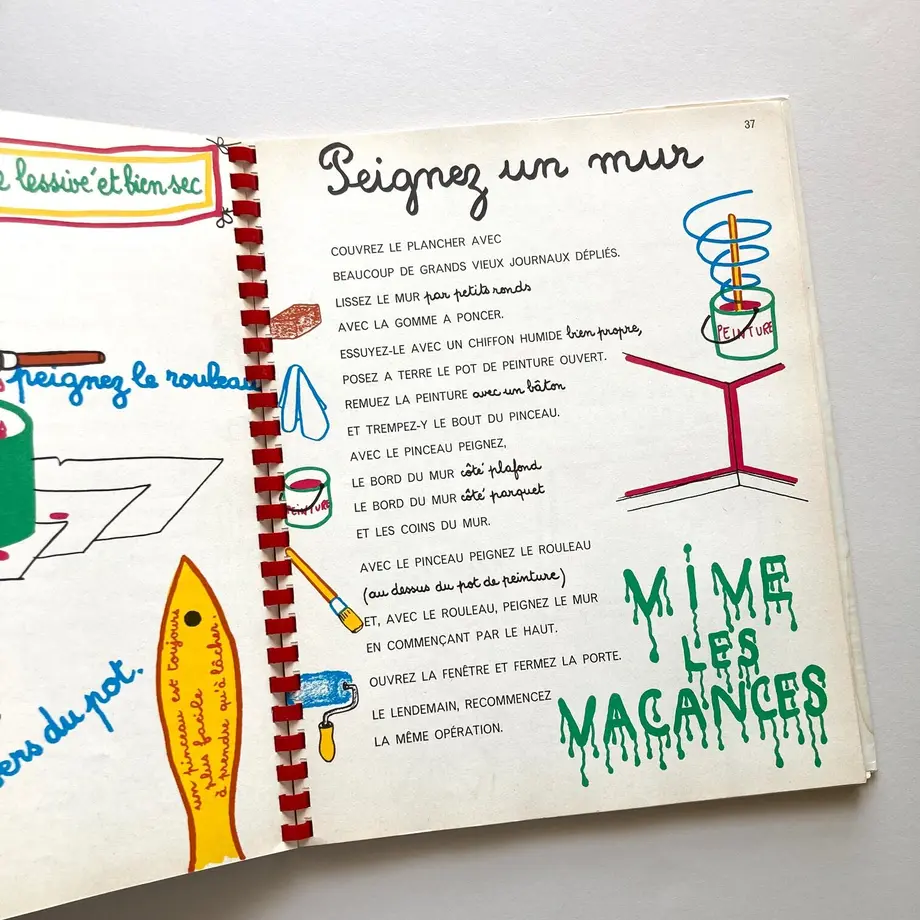 lessivé et bien sec
peignez le rouleau
un pinceau est toujours
plus facile
à prendre qu'à lâcher.
du pot.
37
Peignez un mur
COUVREZ LE PLANCHER AVEC
BEAUCOUP DE GRANDS VIEUX JOURNAUX DÉPLIÉS.
LISSEZ LE MUR par petits ronds
AVEC LA GOMME A PONCER.
ESSUYEZ-LE AVEC UN CHIFFON HUMIDE bien propre,
POSEZ A TERRE LE POT DE PEINTURE OUVERT.
REMUEZ LA PEINTURE avec un bâton
ET TREMPEZ-Y LE BOUT DU PINCEAU.
AVEC LE PINCEAU PEIGNEZ,
LE BORD DU MUR côté plafond
LE BORD DU MUR côté parquet
ET LES COINS DU MUR.
AVEC LE PINCEAU PEIGNEZ LE ROULEAU
(au dessus du pot de peinture)
ET, AVEC LE ROULEAU, PEIGNEZ LE MUR
EN COMMENÇANT PAR LE HAUT.
OUVREZ LA FENÊTRE ET FERMEZ LA PORTE.
LE LENDEMAIN, RECOMMENCEZ
LA MÊME OPÉRATION.
PEINTURE
PEINTURE
MIME
LES
VACANCES